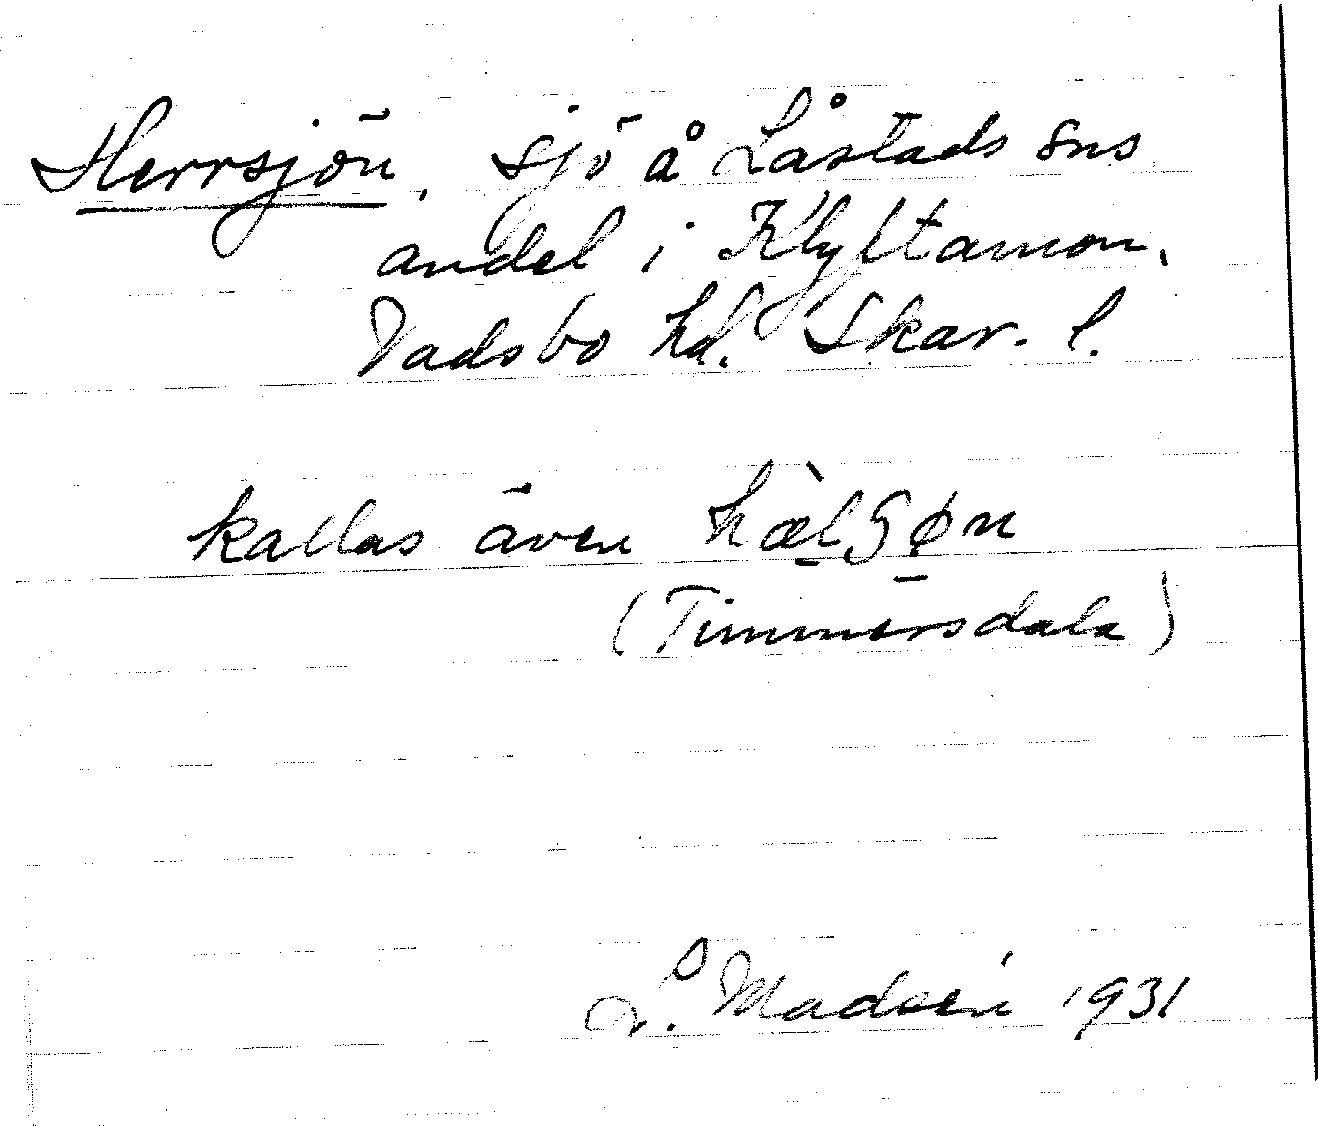 Herrsjön, sjö å Låstads sns
andel i Klyftamon,
Vadsbo hd. Skar. l.
kallas även
(Timmersdala)
Madsén 1931